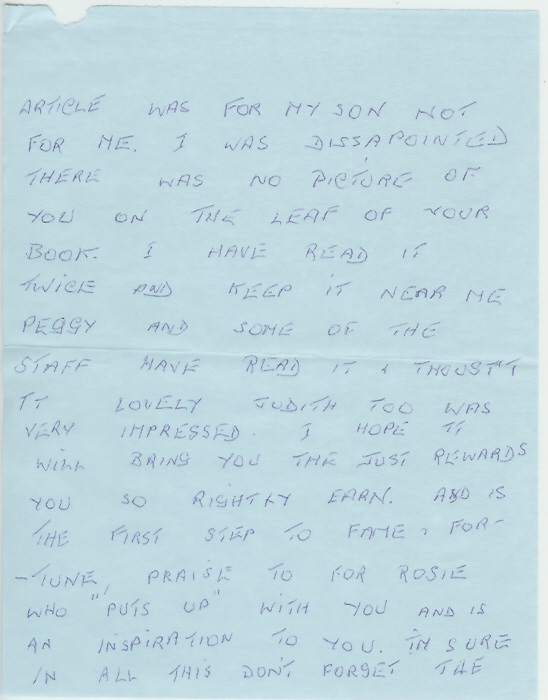 ARTICLE WAS FOR MY SON NOT
FOR ME. I WAS DISSAPOINTED
THERE WAS NO PICTURE OF
YOU ON THE LEAF OF YOUR
BOOK. I HAVE READ IT
TWICE AND KEEP IT NEAR ME
PEGGY AND SOME OF THE
STAFF HAVE READ IT &
IT LOVELY JUDITH TOO WAS
VERY IMPRESSED. I HOPE IT
WILL BRING YOU THE JUST REWARDS
YOU SO RIGHTLY EARN. AND IS
THE FIRST STEP TO FAME & FOR-
-TUNE, PRAISE TO FOR ROSIE
WHO "PUTS UP" WITH YOU AND IS
AN INSPIRATION TO YOU. IM SURE
IN ALL THIS DON'T FORGET THE